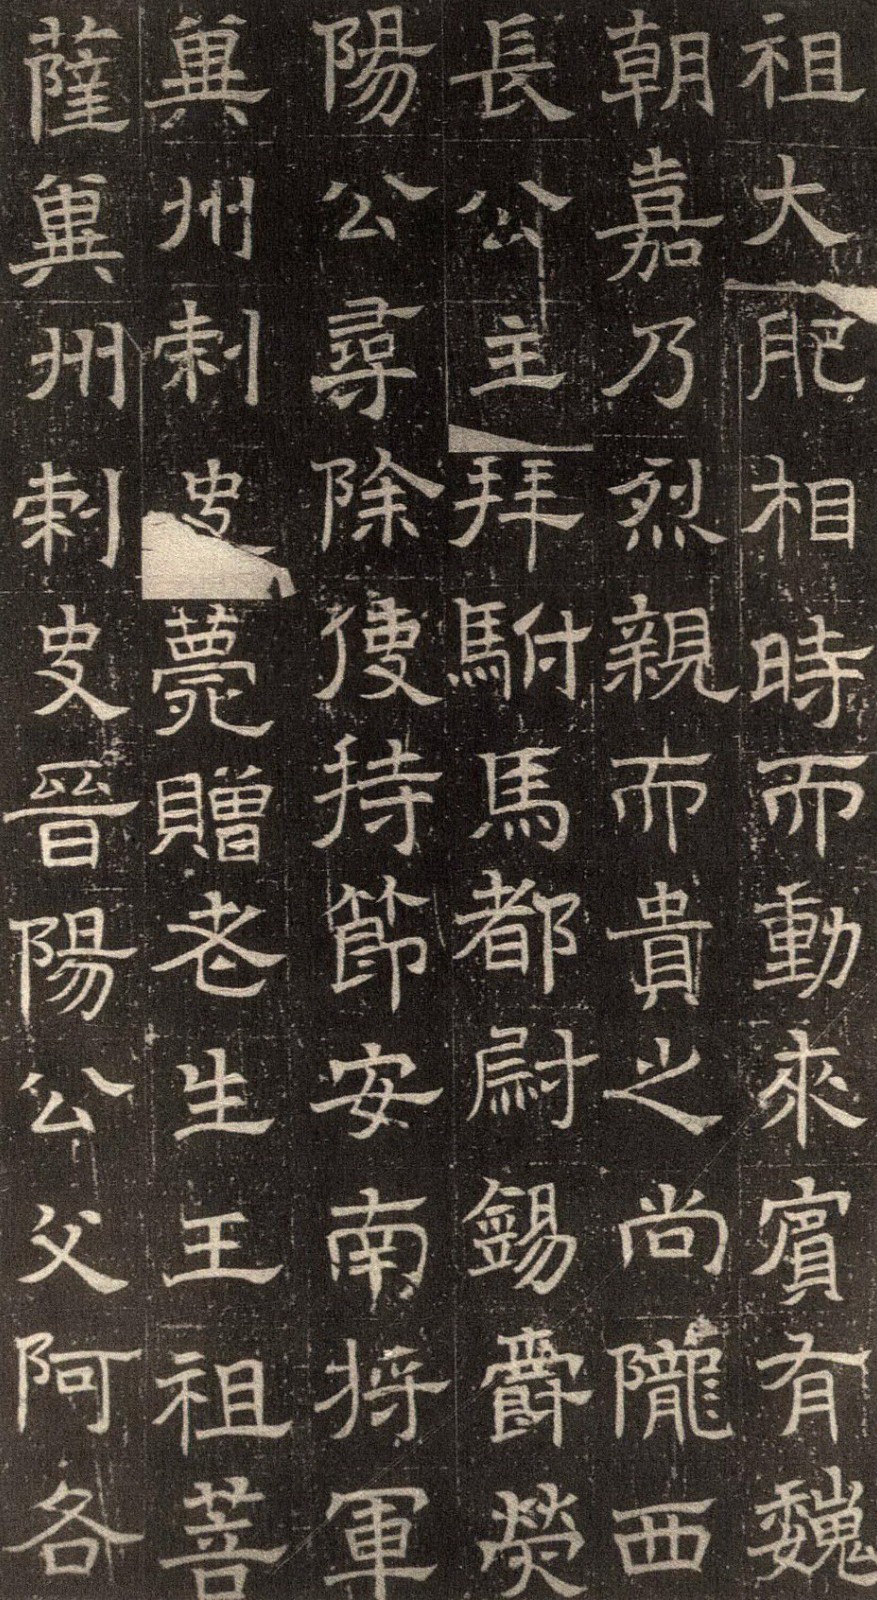 祖大肥相時而動來賔有魏
朝嘉乃烈親而貴之尚隴西
長公主拜駙馬都尉錫爵熒
陽公尋除使持節安南將軍
冀州刺史薨贈老生王祖菩
薩冀州刺史晉陽公父阿各